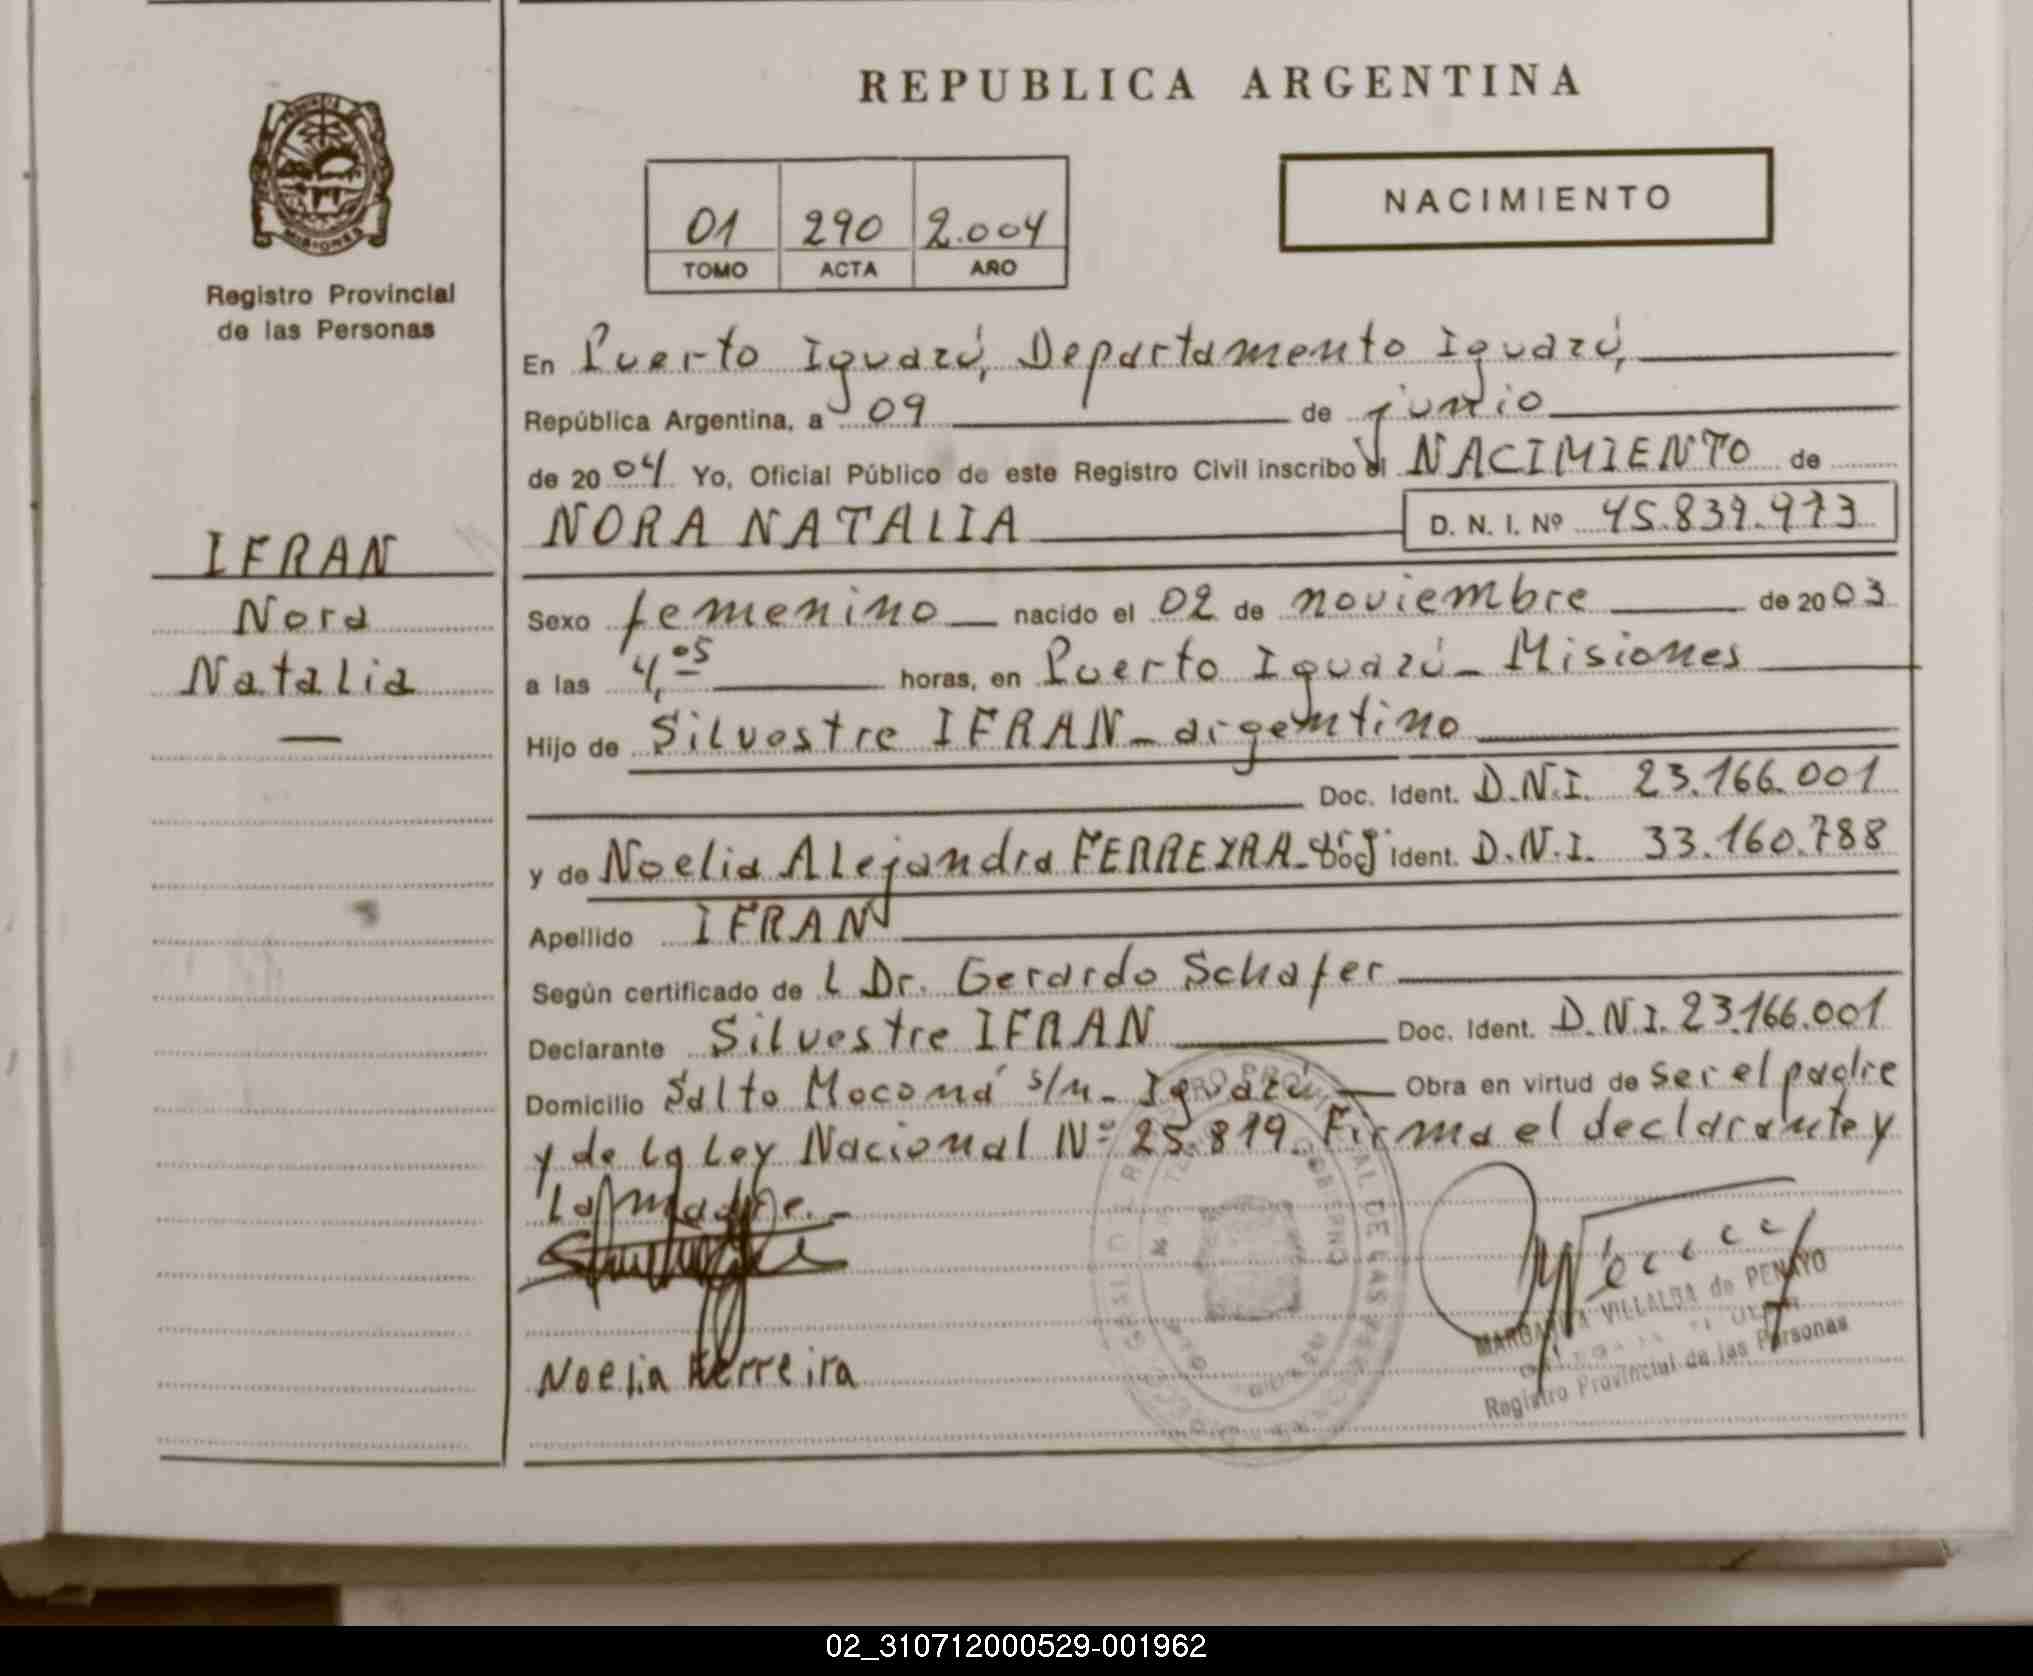 REPUBLICA ARGENTINA
NACIMIENTO
01 290 2.004
TOMO ACTA AÑO
MISIONES
Registro Provincial
de las Personas
IFRAN
Nora
Natalia
En Puerto Iguazú, Departamento Iguazú,
República Argentina, a 09 de junio
de 2004 Yo, Oficial Público de este Registro Civil inscribo el NACIMIENTO de
NORA NATALIA D. N. I. Nº 45.839.973
Sexo femenino nacido el 02 de noviembre de 2003
a las 4,05 horas, en Puerto Iguazú - Misiones
Hijo de Silvestre IFRAN - argentino
Doc. Ident. D.N.I. 23.166.001
y de Noelia Alejandra FERREYRA - Doc. Ident. D.N.I. 33.160.788
Apellido IFRAN
Según certificado de L Dr. Gerardo Schafer
Declarante Silvestre IFRAN Doc. Ident. D.N.I. 23.166.001
Domicilio Salto Moconá s/n - Iguazú Obra en virtud de ser el padre
y de la Ley Nacional Nº 25.819. Firma el declarante y
la madre. -
Noelia Ferreira
MARGARITA VILLALBA de PENAYO
Registro Provincial de las Personas
02_310712000529-001962